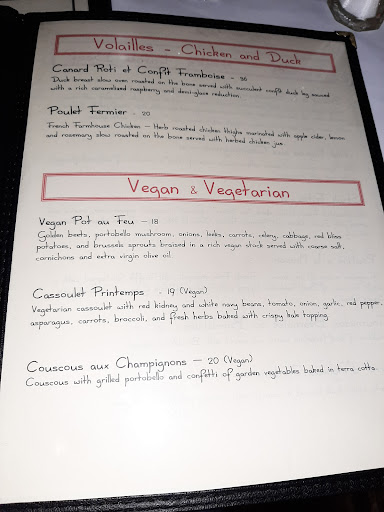 Volailles - Chicken and Duck
Canard Roti et Confit Framboise - 26
Duck breast slow oven roasted on the bone served with succulent confit duck leg sauced
with a rich caramelized raspberry and demi-glace reduction.
Poulet Fermier - 20
French Farmhouse Chicken – Herb roasted chicken thighs marinated with apple cider, lemon
and rosemary slow roasted on the bone served with herbed chicken jus.
Vegan & Vegetarian
Vegan Pot au Feu – 18
Golden beets, portobello mushroom, onions, leeks, carrots, celery, cabbage, red bliss
potatoes, and brussels sprouts braised in a rich vegan stock served with coarse salt,
cornichons and extra virgin olive oil
Cassoulet Printemps - 19 (Vegan)
Vegetarian cassoulet with red kidney and white navy beans, tomato, onion, garlic, red pepper,
asparagus, carrots, broccoli, and fresh herbs baked with crispy kale topping
Couscous aux Champignons – 20 (Vegan)
Couscous with grilled portobello and confetti of garden vegetables baked in terra cotta.